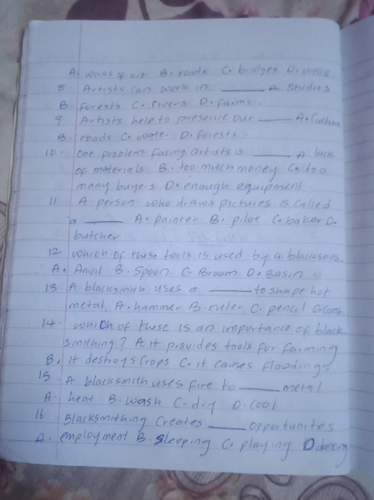 A. works of art B. roads C. bridges D. wells
8. Artists can work in ____ A. Studios
B. forests C. rivers D. farms.
9. Artists help to preserve our ____ A. Culture
B. roads C. water D. forests.
10. One problem facing artists is ____ A. lack
of materials B. too much money C. too
many buyers D. enough equipment.
11. A person who draws pictures is called
a ____ A. painter B. pilot C. baker D.
butcher
12. which of these tools is used by a blacksmith
A. Anvil B. Spoon C. Broom D. Basin
13. A blacksmith uses a ____ to shape hot
metal. A. hammer B. ruler C. pencil
14. which of these is an importance of black
smithing? A. it provides tools for farming
B. it destroys crops C. it causes flooding
15. A blacksmith uses fire to ____ metal
A. heat B. wash C. dry D. cool
16. Blacksmithing creates ____ opportunities
employment B. Sleeping C. playing D. dancing